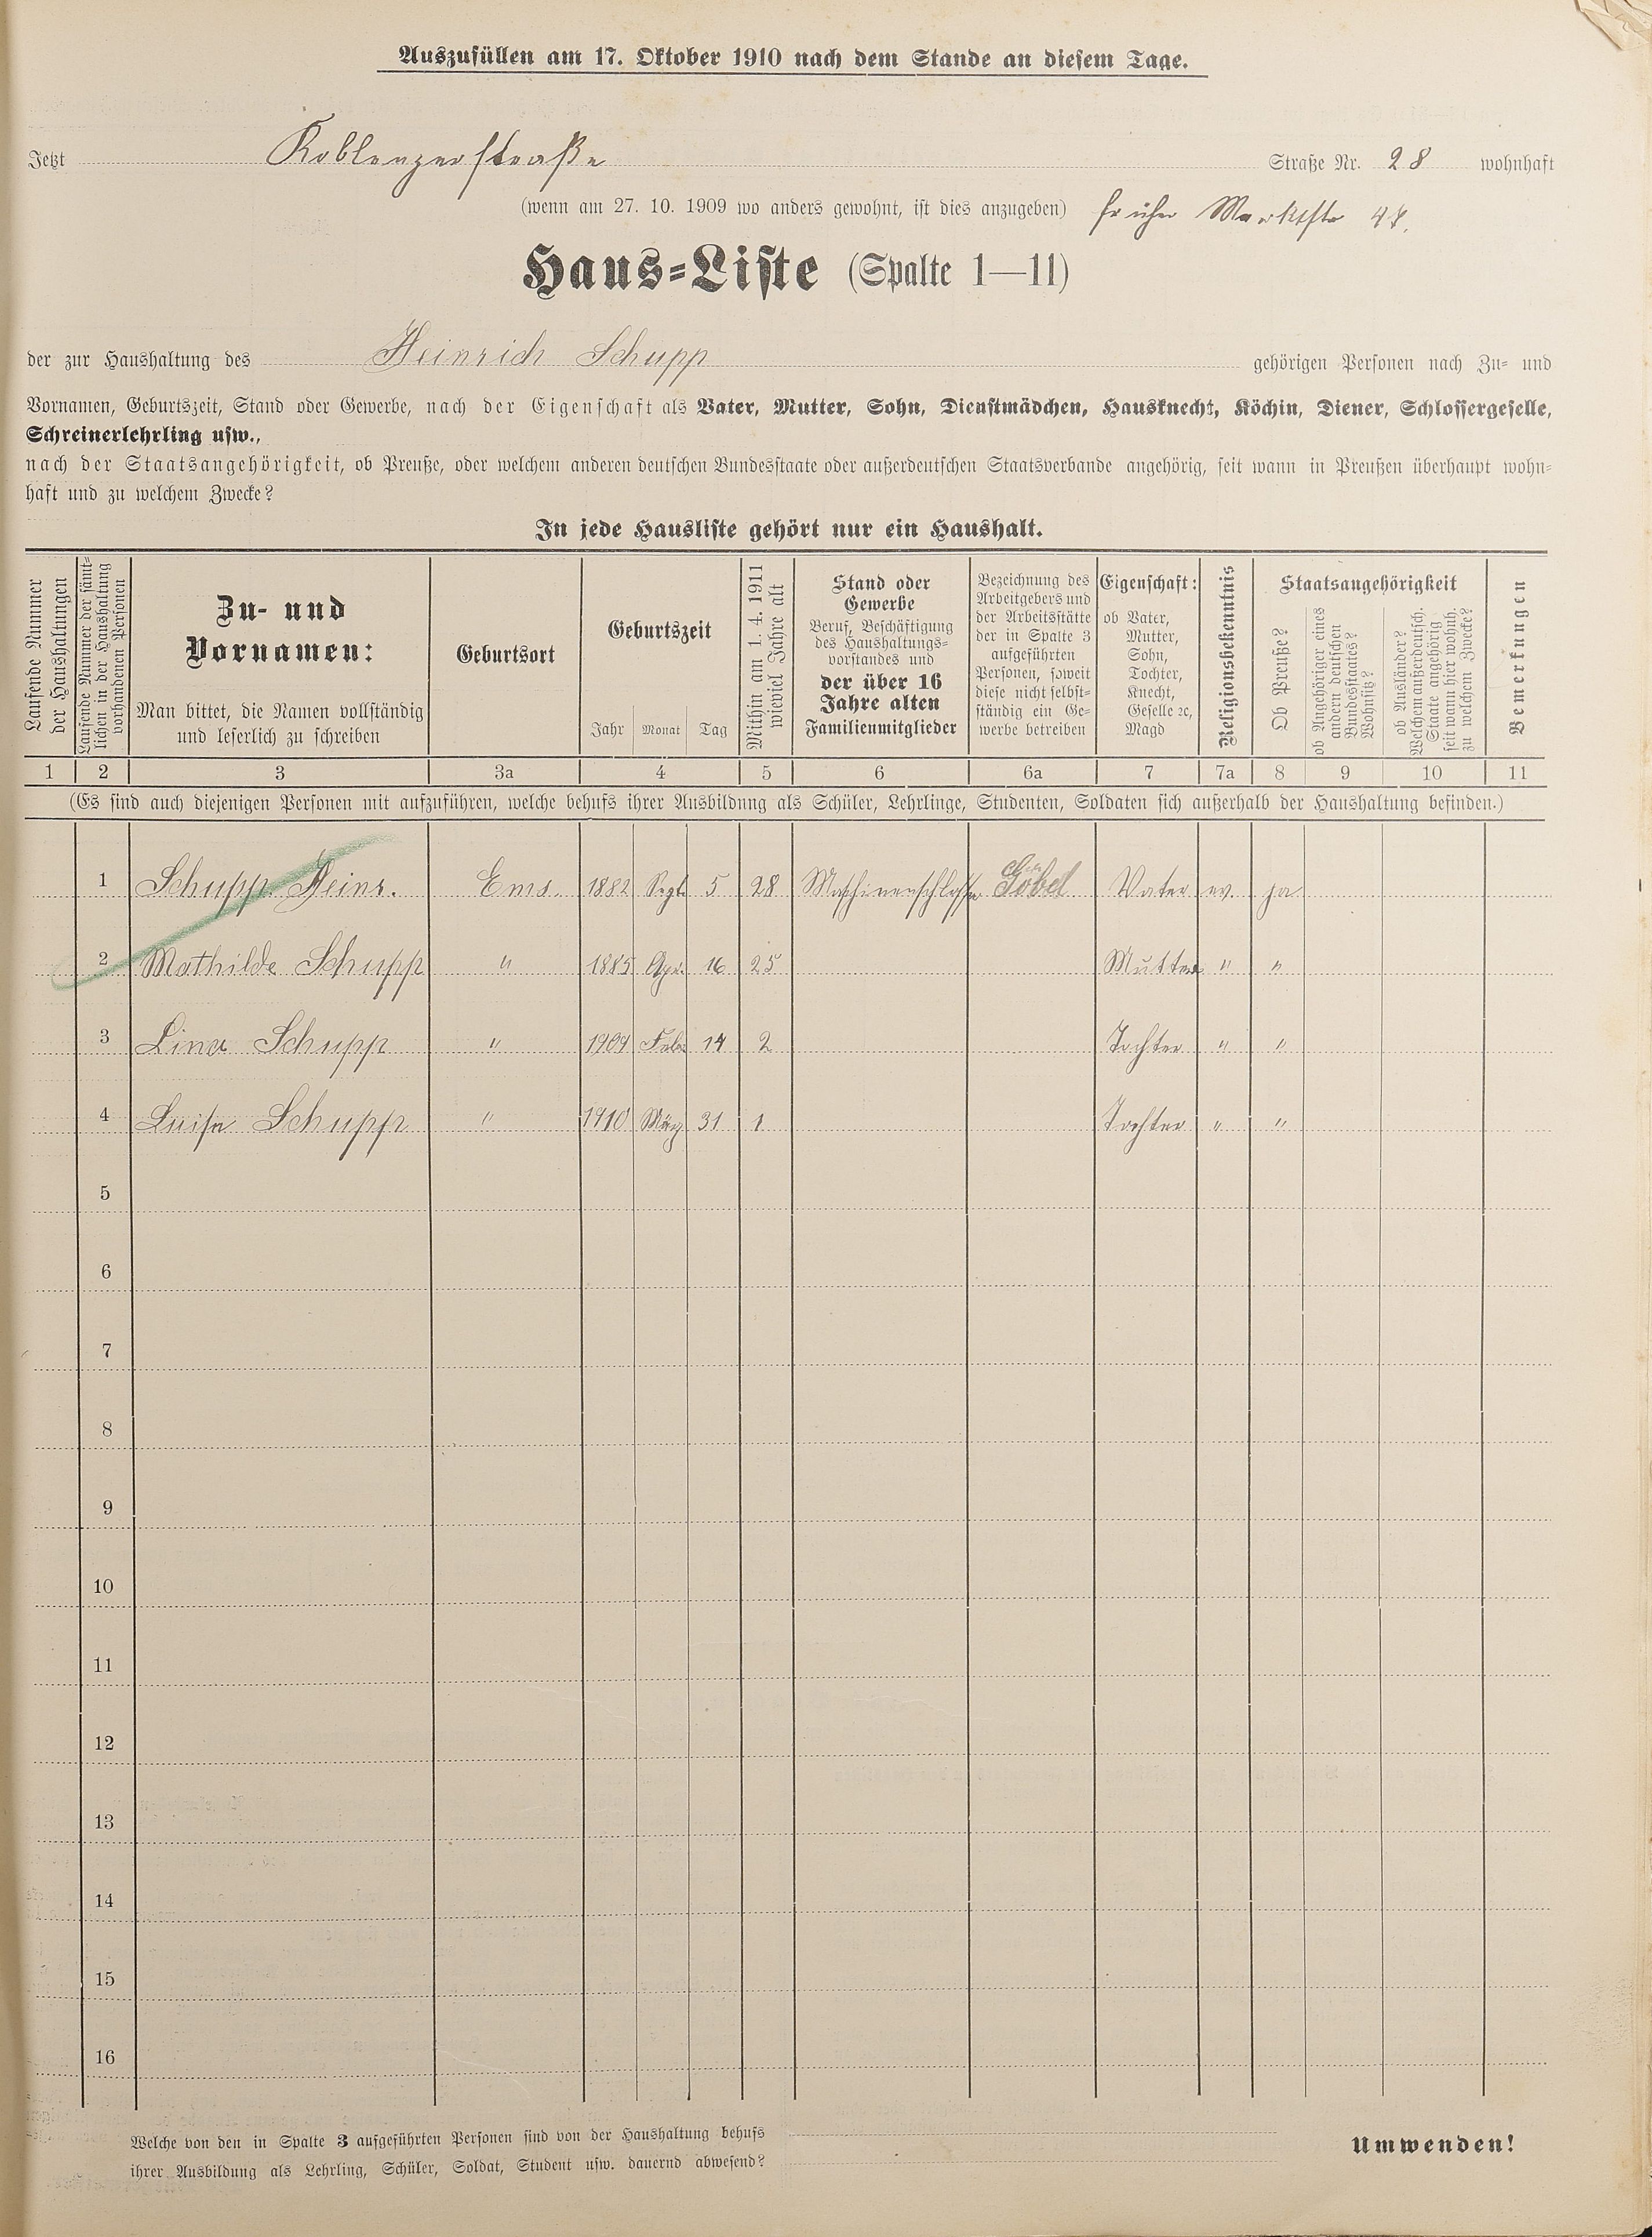 Auszufüllen am 17. Oktober 1910 nach dem Stande an diesem Tage.
Jetzt Koblenzerstraße Straße Nr. 28 wohnhaft
(wenn am 27. 10. 1909 wo anders gewohnt, ist dies anzugeben) früher Marktstr
Haus-Liste (Spalte 1—11)
der zur Haushaltung des Heinrich Schupp gehörigen Personen nach Zu- und
Vornamen, Geburtszeit, Stand oder Gewerbe, nach der Eigenschaft als Vater, Mutter, Sohn, Dienstmädchen, Hausknecht, Köchin, Diener, Schlossergeselle,
Schreinerlehrling usw.,
nach der Staatsangehörigkeit, ob Preuße, oder welchem anderen deutschen Bundesstaate oder außerdeutschen Staatsverbande angehörig, seit wann in Preußen überhaupt wohn-
haft und zu welchem Zwecke?
In jede Hausliste gehört nur ein Haushalt.
Laufende Nummer
der Haushaltungen
Laufende Nummer der sämt-
lichen in der Haushaltung
vorhandenen Personen
Zu- und
Vornamen:
Man bittet, die Namen vollständig
und leserlich zu schreiben
Geburtsort
Geburtszeit
Jahr Monat Tag
Mithin am 1. 4. 1911
wieviel Jahre alt
Stand oder
Gewerbe
Beruf, Beschäftigung
des Haushaltungs-
vorstandes und
der über 16
Jahre alten
Familienmitglieder
Bezeichnung des
Arbeitgebers und
der Arbeitsstätte
der in Spalte 3
aufgeführten
Personen, soweit
diese nicht selbst-
ständig ein Ge-
werbe betreiben
Eigenschaft:
ob Vater,
Mutter,
Sohn,
Tochter,
Knecht,
Geselle ꝛc,
Magd
Religionsbekenntnis
Staatsangehörigkeit
Ob Preuße?
ob Angehöriger eines
andern deutschen
Bundesstaates?
Wohnsitz?
ob Ausländer?
Welchem außerdeutsch.
Staate angehörig
seit wann hier wohnh.
zu welchem Zwecke?
Bemerkungen
1 2 3 3a 4 5 6 6a 7 7a 8 9 10 11
(Es sind auch diejenigen Personen mit aufzuführen, welche behufs ihrer Ausbildung als Schüler, Lehrlinge, Studenten, Soldaten sich außerhalb der Haushaltung befinden.)
1 Schupp Heinr. Ems. 1882 Sept 5 28 Maschinenschlosser Göbel Vater ev. ja
2 Mathilde Schupp " 1885 Apr. 16 25 Mutter " "
3 Lina Schupp " 1909 Febr 14 2 Tochter " "
4 Luise Schupp " 1910 März 31 1 Tochter " "
5
6
7
8
9
10
11
12
13
14
15
16
Welche von den in Spalte 3 aufgeführten Personen sind von der Haushaltung behufs
ihrer Ausbildung als Lehrling, Schüler, Soldat, Student usw. dauernd abwesend?
Umwenden!